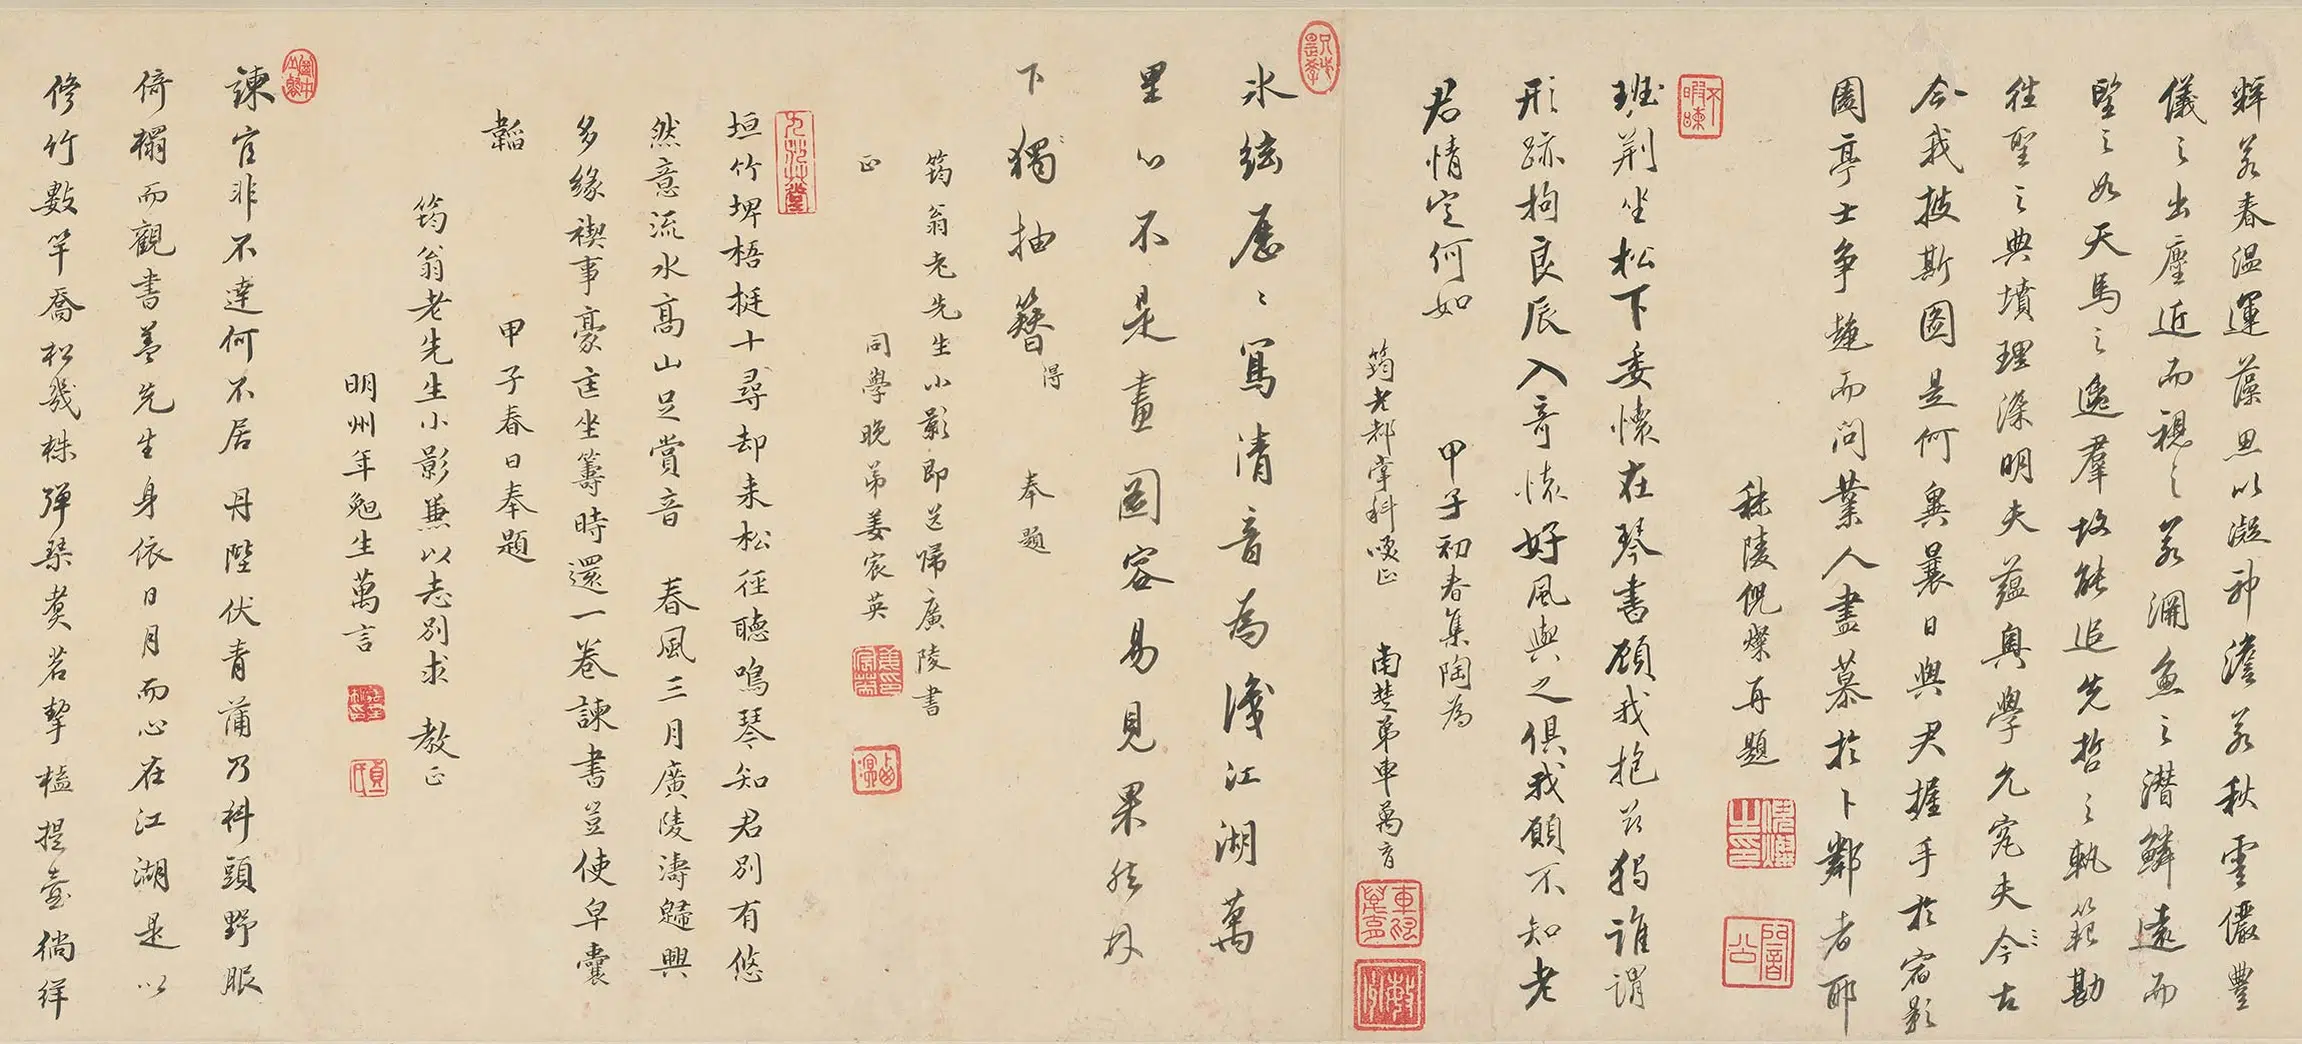 粹若春温運藻思以凝神澹若秋雲儼豐
儀之出塵近而視之若淵魚之潛鱗遠而
望之如天馬之逸羣故能追先哲之軌範勘
往聖之典墳理深明夫蘊奥學允究夫今古
今我披斯圖是何異曩日與君握手於宿影
園亭士争趍而問業人盡慕於卜鄰者耶
秣陵倪燦再題
班荆坐松下委懷在琴書顧我抱兹獨誰謂
形跡拘良辰入奇懷好風與之俱我願不知老
君情定何如
甲子初春集陶為
筠老都掌科噗正
南楚弟車萬育
冰絃歷歷寫清音為濺江湖萬
里心不是畫圖容易見果然林
下獨抽簪
得
奉題
筠翁老先生小影即送歸廣陵書
正
同學晚弟姜宸英
垣竹埤梧挺十尋却来松徑聽鳴琴知君别有悠
然意流水高山足賞音
春風三月廣陵濤歸興
多緣禊事豪坐籌時還一卷諫書豈使皁囊
韜
甲子春日奉題
筠翁老先生小影兼以志别求
教正
明州年勉生萬言
諫官非不達何不居丹陛伏青蒲乃科頭野服
倚榻而觀書盖先生身依日月而心在江湖是以
修竹數竿喬松幾株彈琴煑茗挈榼提壺徜徉